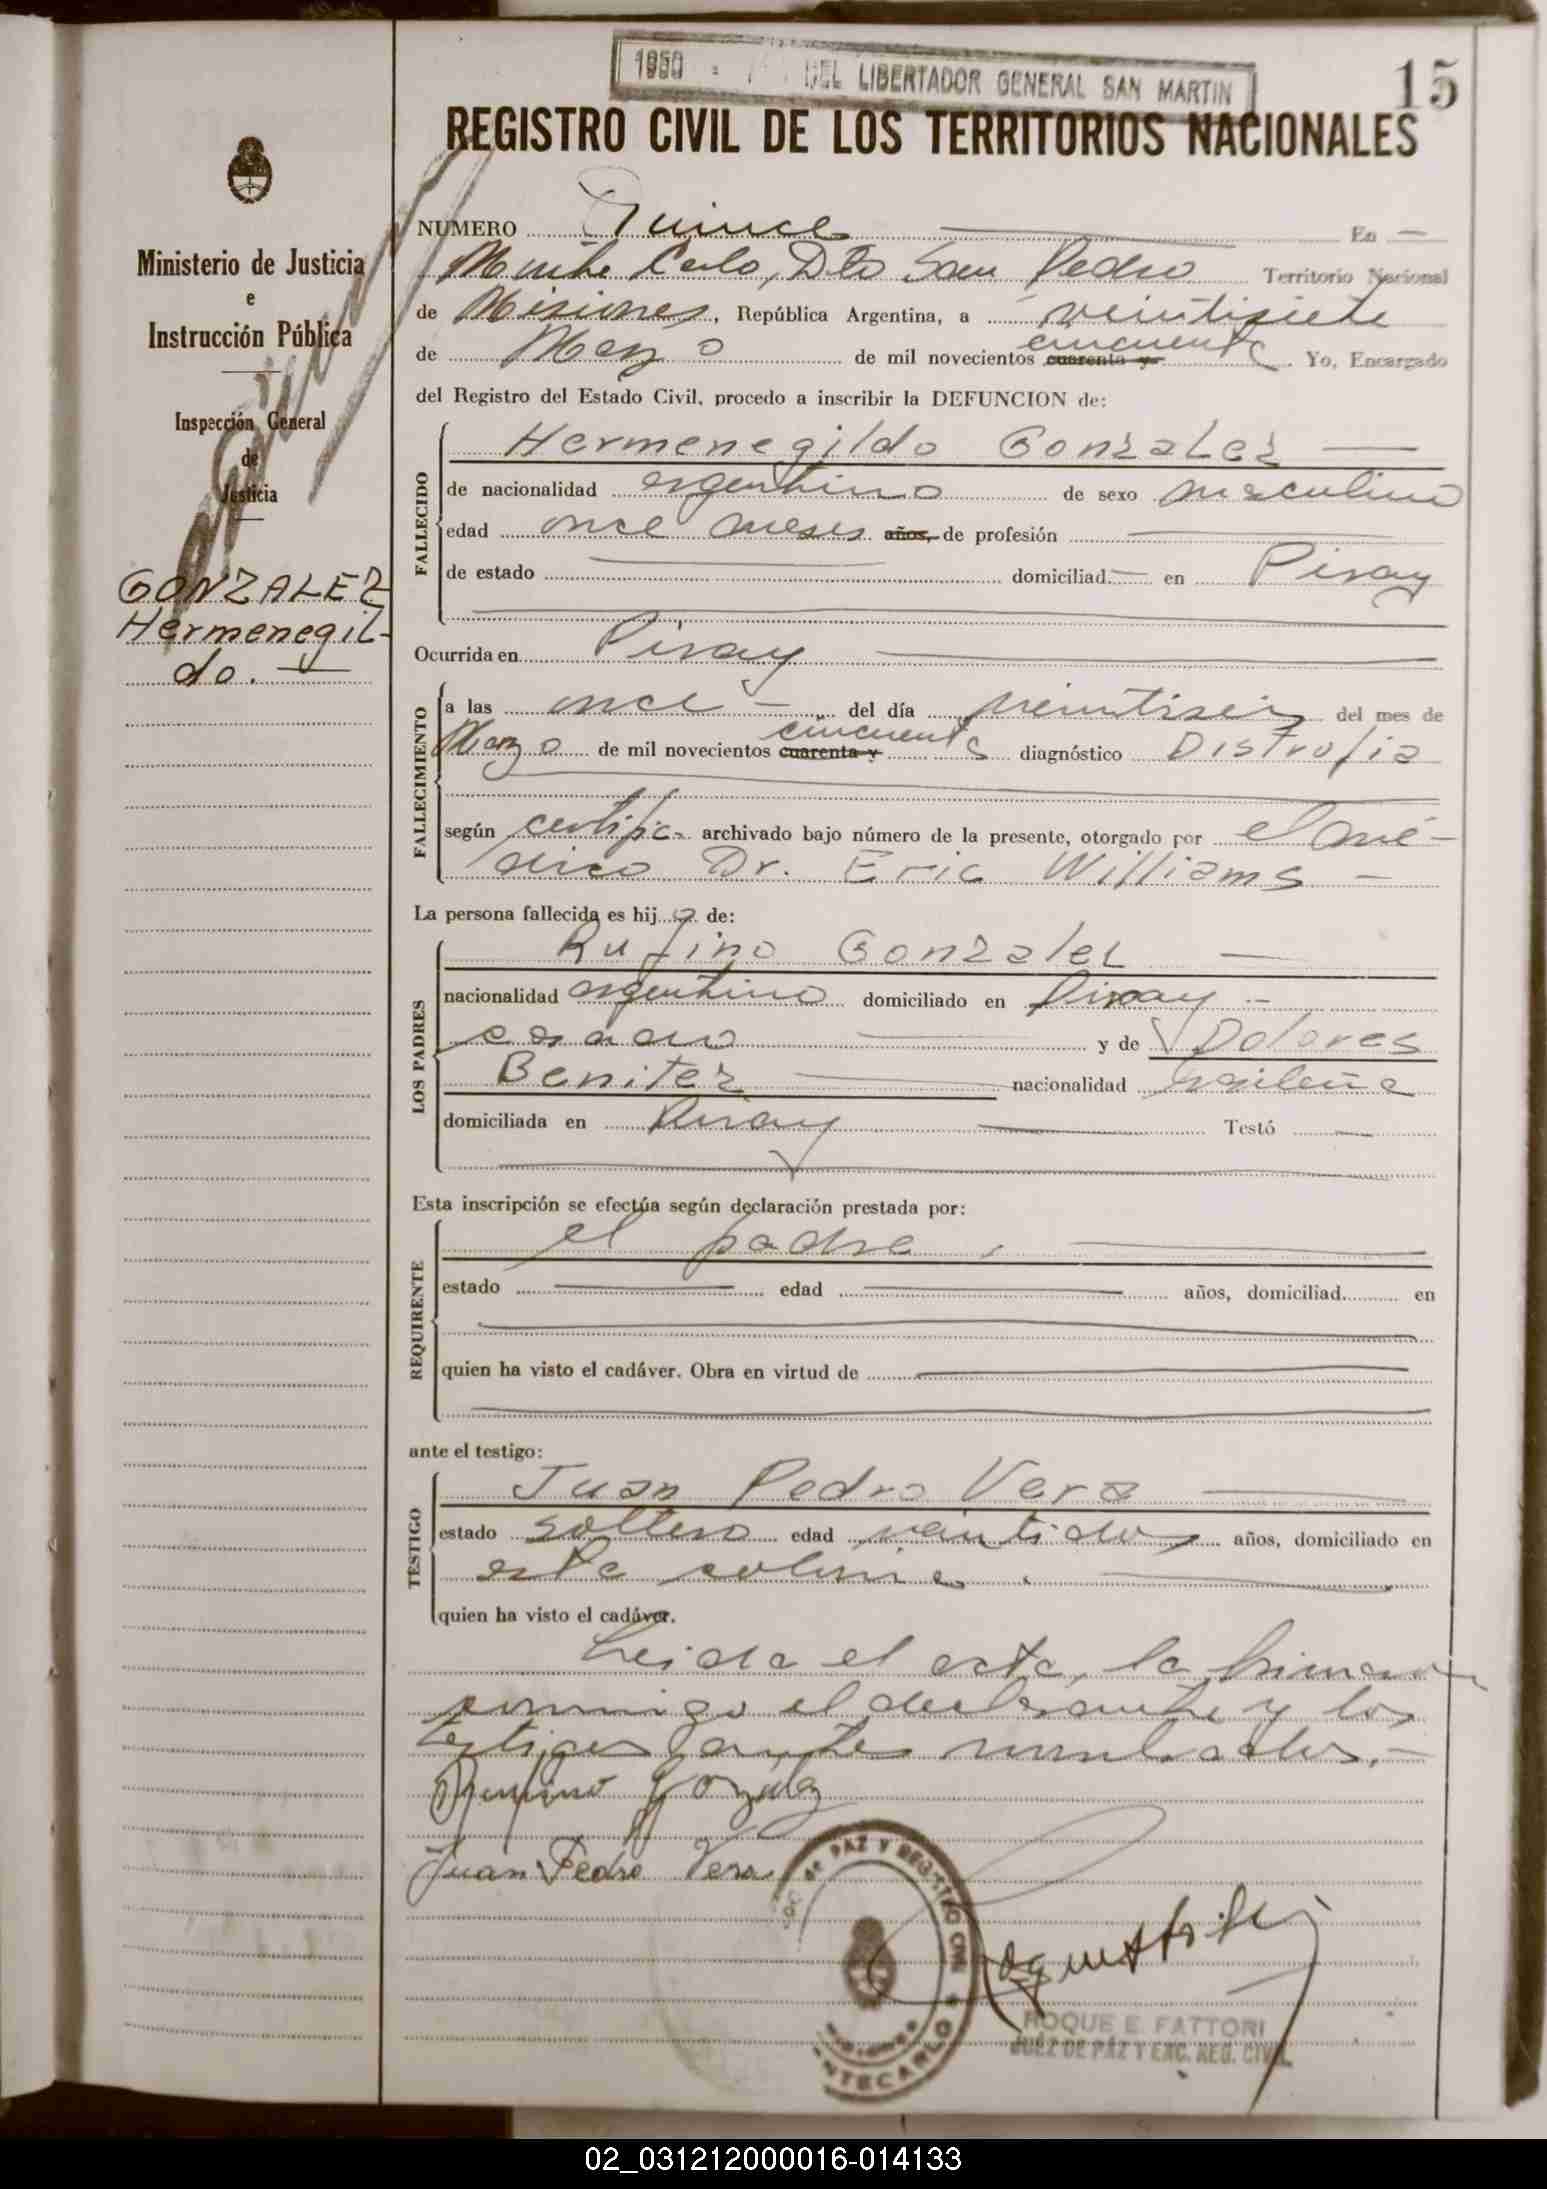 1950 - DEL LIBERTADOR GENERAL SAN MARTIN
15
REGISTRO CIVIL DE LOS TERRITORIOS NACIONALES
Ministerio de Justicia
e
Instrucción Pública
Inspección General
de
Justicia
GONZALEZ
Hermenegil-
do. —
NUMERO Quince — En —
Monte Carlo, Dto San Pedro Territorio Nacional
de Misiones, República Argentina, a veintisiete
de Marzo de mil novecientos cuarenta y cincuenta. Yo, Encargado
del Registro del Estado Civil, procedo a inscribir la DEFUNCION de:
FALLECIDO
Hermenegildo Gonzalez —
de nacionalidad argentino de sexo masculino
edad once meses años, de profesión —
de estado — domiciliad — en Piray
Ocurrida en Piray —
FALLECIMIENTO
a las once — del día veintiseis del mes de
Marzo de mil novecientos cuarenta y cincuenta diagnóstico Distrofia
según certific. archivado bajo número de la presente, otorgado por el mé-
dico Dr. Eric Williams —
La persona fallecida es hijo de:
LOS PADRES
Rufino Gonzalez —
nacionalidad argentino domiciliado en Piray —
casado — y de Dolores
Benitez — nacionalidad brasileña
domiciliada en Piray — Testó —
Esta inscripción se efectúa según declaración prestada por:
REQUIRENTE
el padre, —
estado — edad — años, domiciliad en
quien ha visto el cadáver. Obra en virtud de —
ante el testigo:
TESTIGO
Juan Pedro Vera —
estado soltero edad veintidos años, domiciliado en
esta colonia. —
quien ha visto el cadáver.
Leida el acta, la firman
conmigo el declarante y los
testigos antes nombrados.—
Rufino González
Juan Pedro Vera
DE PAZ Y REGISTRO CIVIL
MONTECARLO
ROQUE E. FATTORI
JUEZ DE PAZ Y ENC. REG. CIVIL
02_031212000016-014133